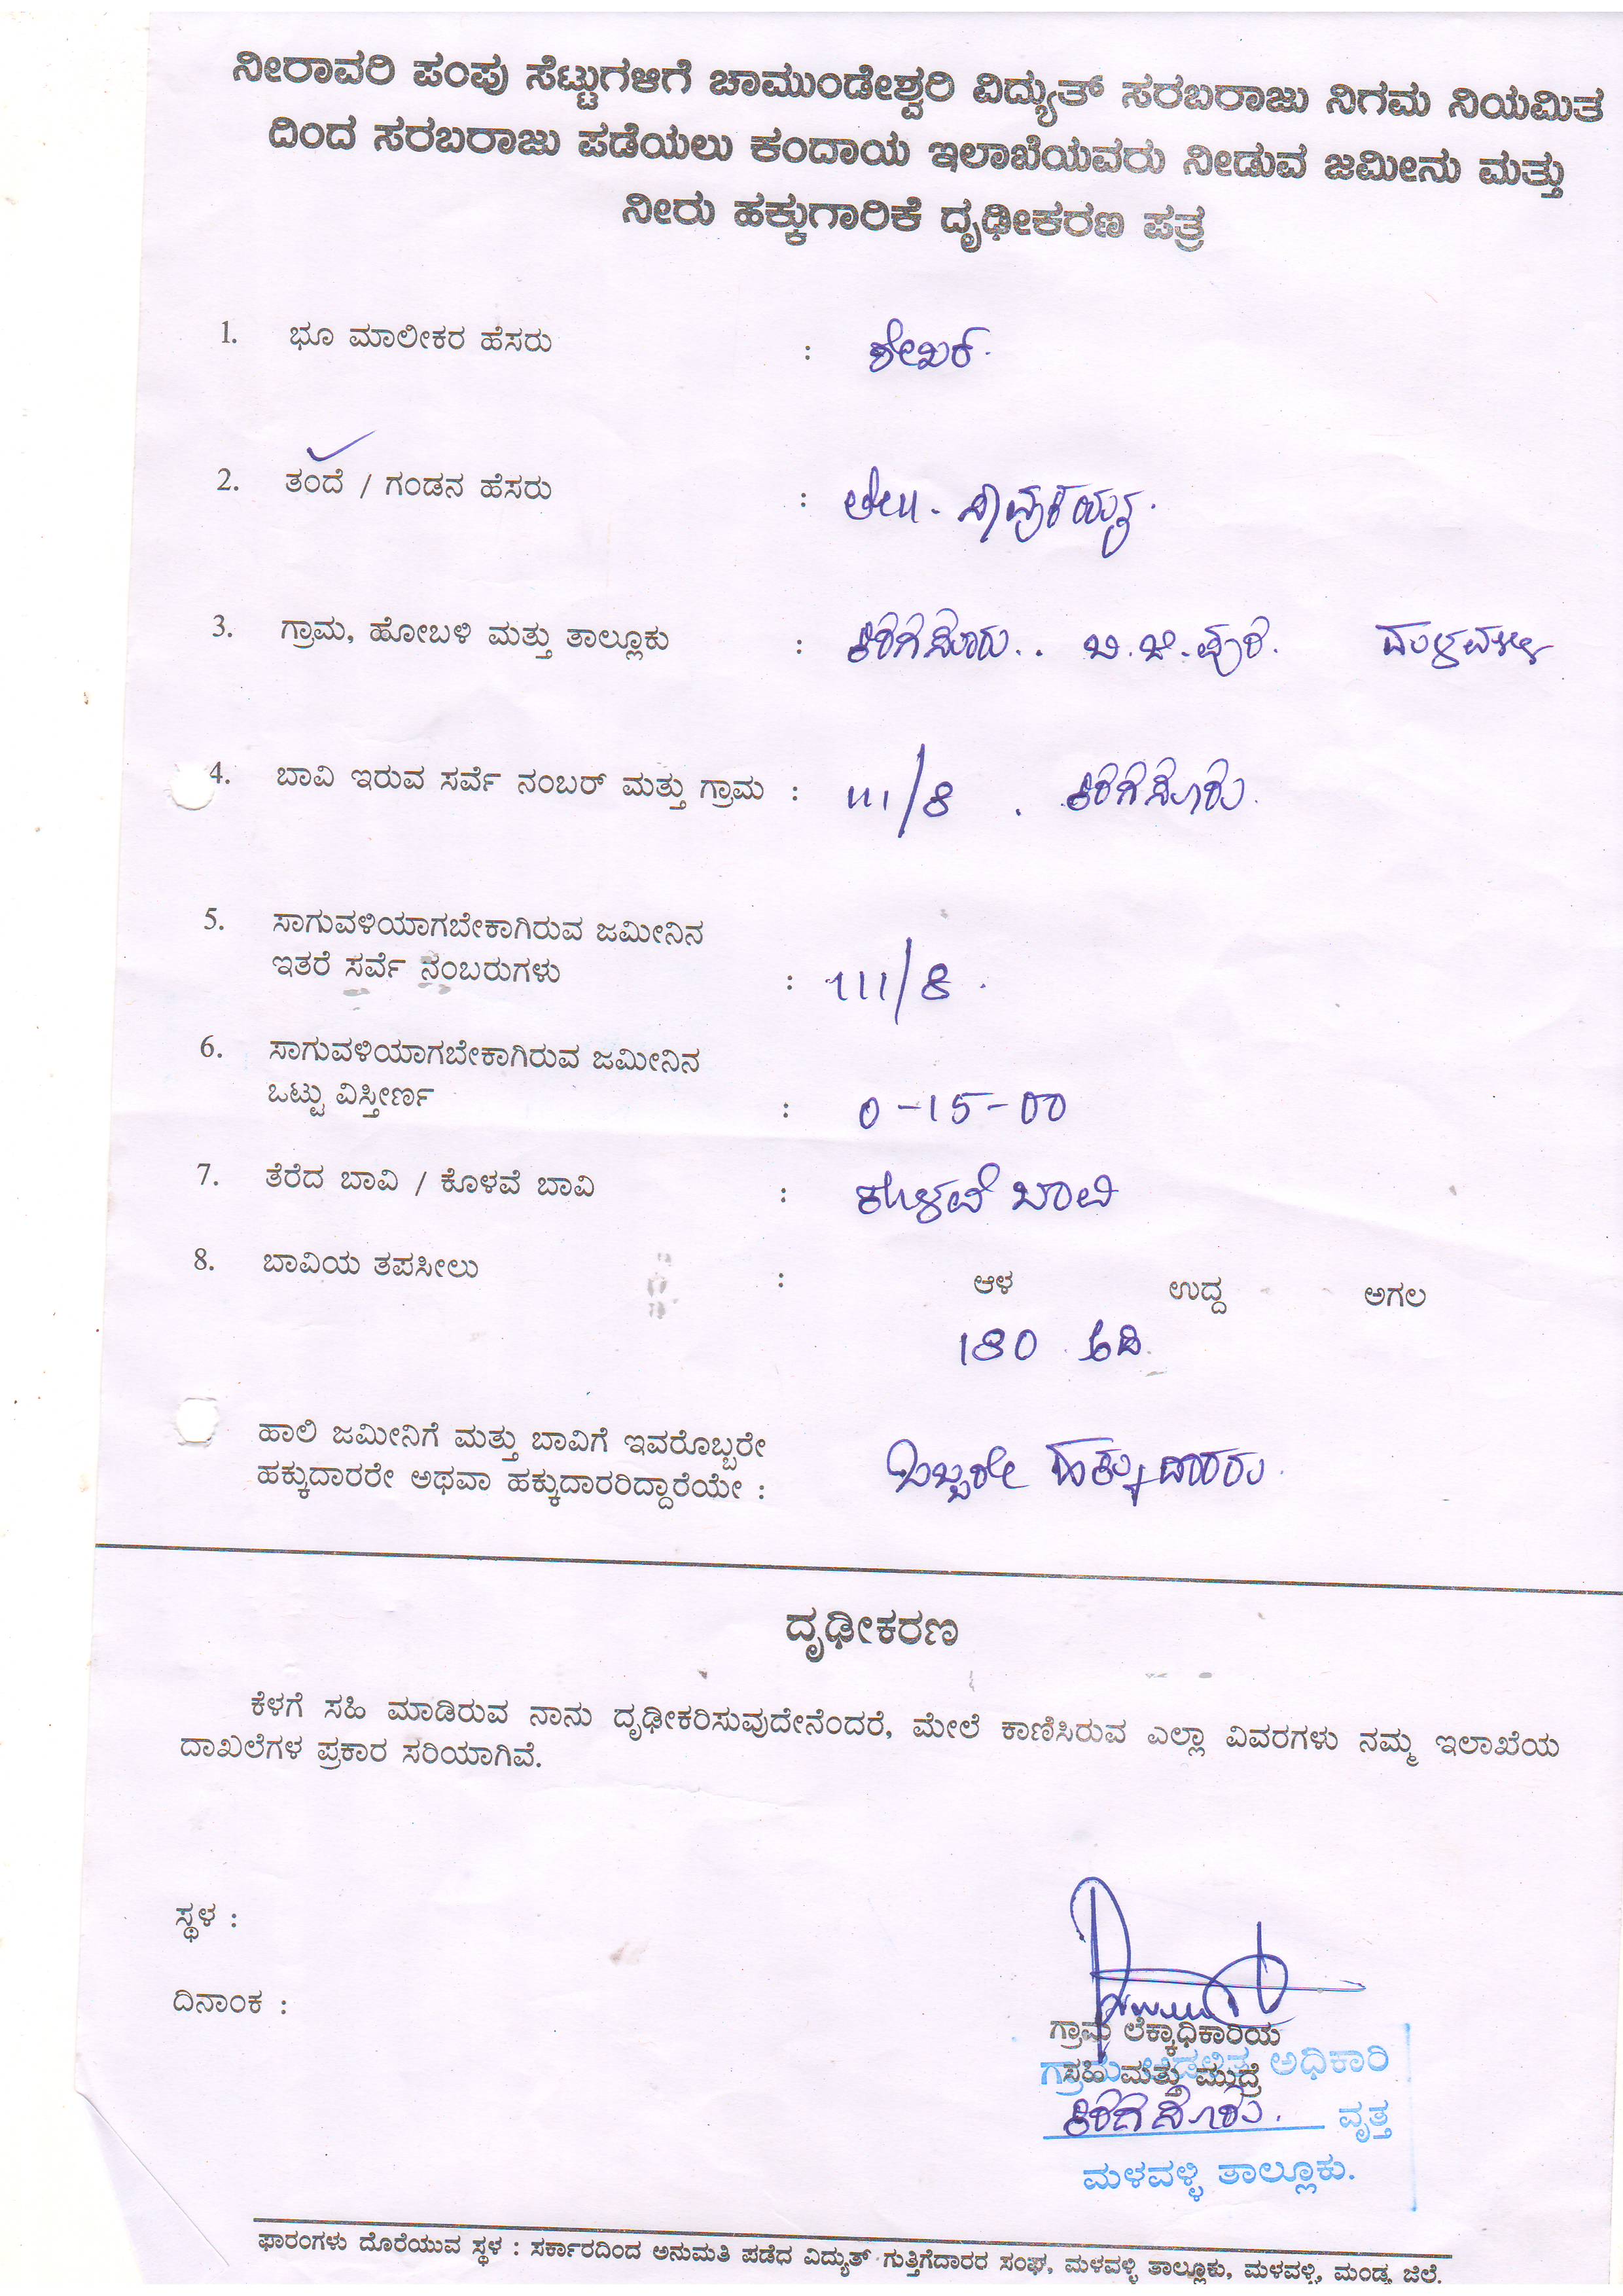 ನೀರಾವರಿ ಪಂಪು ಸೆಟ್ಟುಗಳಿಗೆ ಚಾಮುಂಡೇಶ್ವರಿ ವಿದ್ಯುತ್ ಸರಬರಾಜು ನಿಗಮ ನಿಯಮಿತ
ದಿಂದ ಸರಬರಾಜು ಪಡೆಯಲು ಕಂದಾಯ ಇಲಾಖೆಯವರು ನೀಡುವ ಜಮೀನು ಮತ್ತು
ನೀರು ಹಕ್ಕುಗಾರಿಕೆ ದೃಢೀಕರಣ ಪತ್ರ
1. ಭೂ ಮಾಲೀಕರ ಹೆಸರು : ಶೇಖರ್.
2. ತಂದೆ / ಗಂಡನ ಹೆಸರು :
3. ಗ್ರಾಮ, ಹೋಬಳಿ ಮತ್ತು ತಾಲ್ಲೂಕು : ಕಿರಿಗೆಸೂರು.. ಬಿ.ಜಿ.ಪುರ. ಮಳವಳ್ಳಿ
4. ಬಾವಿ ಇರುವ ಸರ್ವೆ ನಂಬರ್ ಮತ್ತು ಗ್ರಾಮ : 111/8 . ಕಿರಿಗೆಸೂರು.
5. ಸಾಗುವಳಿಯಾಗಬೇಕಾಗಿರುವ ಜಮೀನಿನ
ಇತರೆ ಸರ್ವೆ ನಂಬರುಗಳು : 111/8 .
6. ಸಾಗುವಳಿಯಾಗಬೇಕಾಗಿರುವ ಜಮೀನಿನ
ಒಟ್ಟು ವಿಸ್ತೀರ್ಣ : 0-15-00
7. ತೆರೆದ ಬಾವಿ / ಕೊಳವೆ ಬಾವಿ : ಕೊಳವೆ ಬಾವಿ
8. ಬಾವಿಯ ತಪಸೀಲು : ಆಳ ಉದ್ದ ಅಗಲ
180 ಅಡಿ.
ಹಾಲಿ ಜಮೀನಿಗೆ ಮತ್ತು ಬಾವಿಗೆ ಇವರೊಬ್ಬರೇ
ಹಕ್ಕುದಾರರೇ ಅಥವಾ ಹಕ್ಕುದಾರರಿದ್ದಾರೆಯೇ : ಒಬ್ಬರೇ ಹಕ್ಕುದಾರರು.
ದೃಢೀಕರಣ
ಕೆಳಗೆ ಸಹಿ ಮಾಡಿರುವ ನಾನು ದೃಢೀಕರಿಸುವುದೇನೆಂದರೆ, ಮೇಲೆ ಕಾಣಿಸಿರುವ ಎಲ್ಲಾ ವಿವರಗಳು ನಮ್ಮ ಇಲಾಖೆಯ
ದಾಖಲೆಗಳ ಪ್ರಕಾರ ಸರಿಯಾಗಿವೆ.
ಸ್ಥಳ :
ದಿನಾಂಕ :
ಗ್ರಾಮ ಲೆಕ್ಕಾಧಿಕಾರಿಯ
ಸಹಿ ಮತ್ತು ಮುದ್ರೆ
ಅಧಿಕಾರಿ
ಕಿರಿಗೆಸೂರು. ವೃತ್ತ
ಮಳವಳ್ಳಿ ತಾಲ್ಲೂಕು.
ಫಾರಂಗಳು ದೊರೆಯುವ ಸ್ಥಳ : ಸರ್ಕಾರದಿಂದ ಅನುಮತಿ ಪಡೆದ ವಿದ್ಯುತ್ ಗುತ್ತಿಗೆದಾರರ ಸಂಘ, ಮಳವಳ್ಳಿ ತಾಲ್ಲೂಕು, ಮಳವಳ್ಳಿ, ಮಂಡ್ಯ ಜಿಲ್ಲೆ.